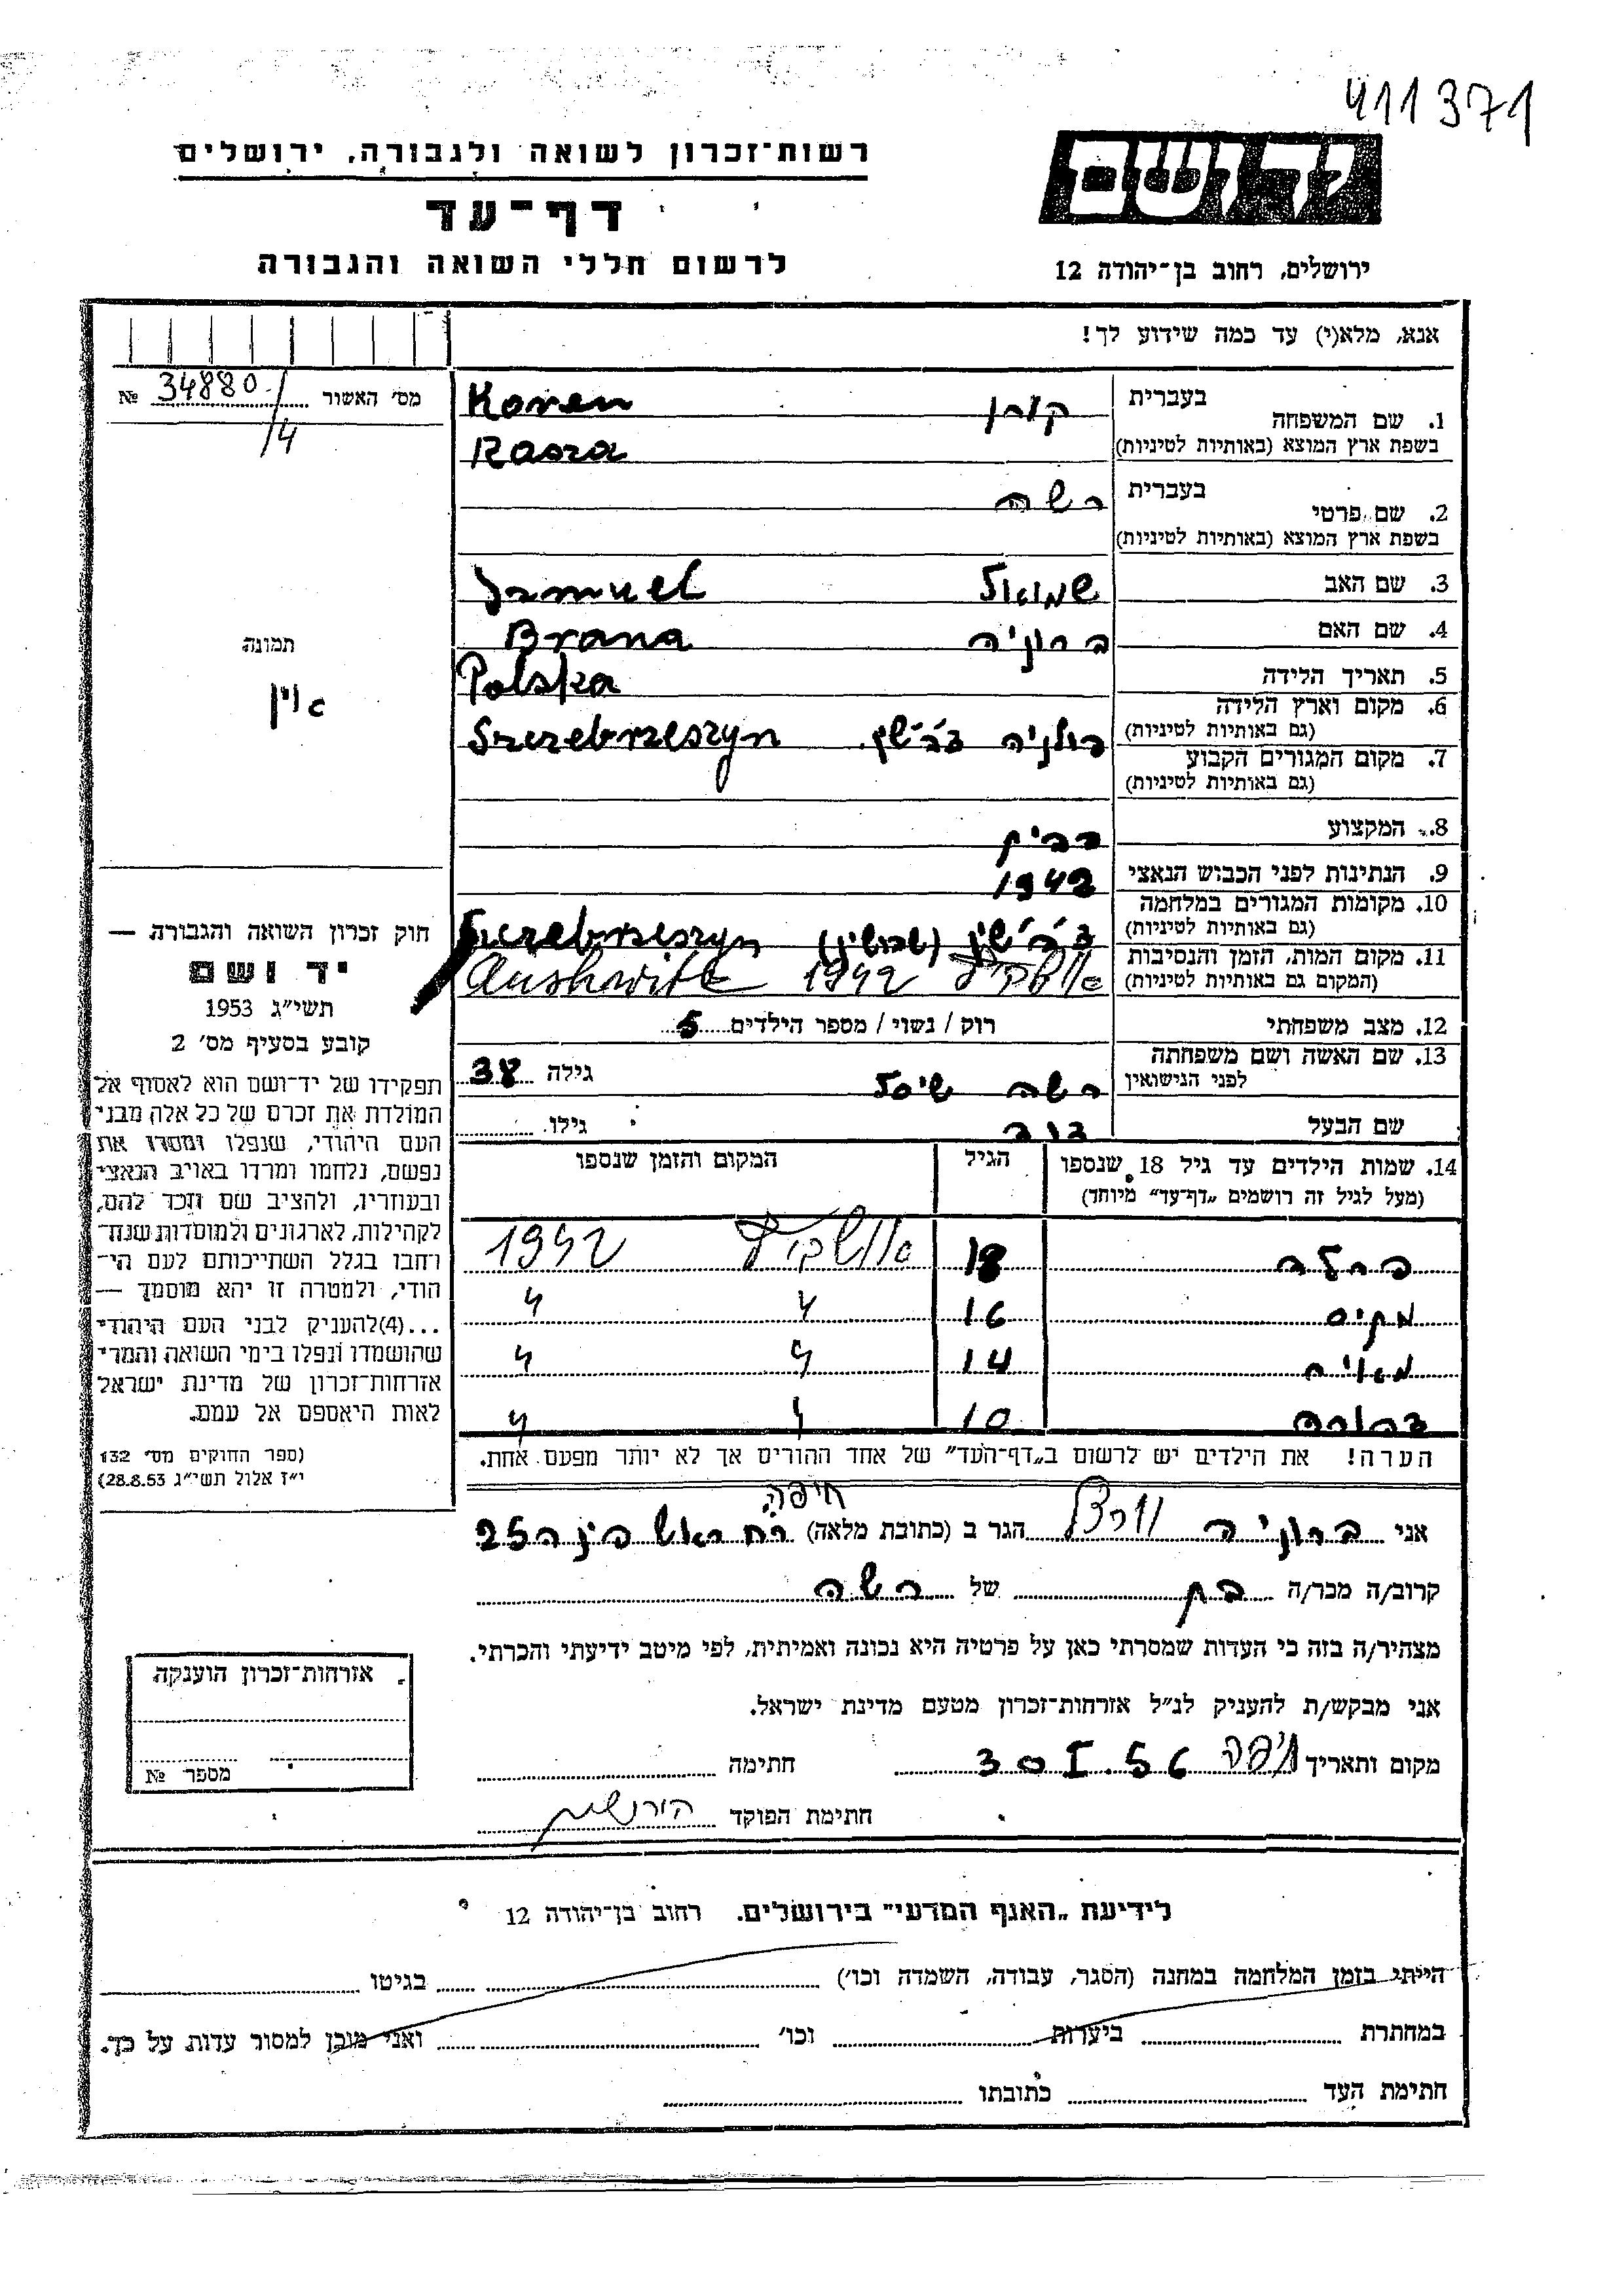 411371
רשות־זכרון לשואה ולגבורה, ירושלים
יד ושם
דף־עד
לרשום חללי השואה והגבורה
ירושלים, רחוב בן־יהודה 12
אנא, מלא(י) עד כמה שידוע לך!
מס׳ האשור 34880/4 №
1. שם המשפחה בעברית קורן Koren
בשפת ארץ המוצא (באותיות לטיניות)
2. שם פרטי בעברית רשה
בשפת ארץ המוצא (באותיות לטיניות)
3. שם האב שמואל Samuel
4. שם האם ברוניה Brana
5. תאריך הלידה Polska
6. מקום וארץ הלידה
(גם באותיות לטיניות) Szczebrzeszyn
7. מקום המגורים הקבוע
(גם באותיות לטיניות)
8. המקצוע
9. הנתינות לפני הכבוש הנאצי 1942
10. מקומות המגורים במלחמה
(גם באותיות לטיניות) Szczebrzeszyn
11. מקום המות, הזמן והנסיבות 1942 Aushwitz
(המקום גם באותיות לטיניות)
12. מצב משפחתי רוק / נשוי / מספר הילדים 5
13. שם האשה ושם משפחתה
לפני הנישואין רשה גילה 38
שם הבעל גילו
14. שמות הילדים עד גיל 18 שנספו הגיל המקום והזמן שנספו
(מעל לגיל זה רושמים „דף־עד” מיוחד)
פרלה 18 1942
16 " "
14 " "
דבורה 10 " "
הערה! את הילדים יש לרשום ב„דף־העד” של אחד ההורים אך לא יותר מפעם אחת.
תמונה
אין
חוק זכרון השואה והגבורה —
יד ושם
תשי״ג 1953
קובע בסעיף מס׳ 2
תפקידו של יד־ושם הוא לאסוף אל
המולדת את זכרם של כל אלה מבני
העם היהודי, שנפלו ומסרו את
נפשם, נלחמו ומרדו באויב הנאצי
ובעוזריו, ולהציב שם וזכר להם,
לקהילות, לארגונים ולמוסדות שנח־
רחבו בגלל השתייכותם לעם הי־
הודי, ולמטרה זו יהא מוסמך —
...(4)להעניק לבני העם היהודי
שהושמדו ונפלו בימי השואה והמרי
אזרחות־זכרון של מדינת ישראל
לאות היאספם אל עמם.
(ספר החוקים מס׳ 132
י״ז אלול תשי״ג 28.8.53)
חיפה,
אני ברוניה הגר ב (כתובת מלאה) רח ראש פינה 25
קרוב/ה מכר/ה בת של רשה
מצהיר/ה בזה כי העדות שמסרתי כאן על פרטיה היא נכונה ואמיתית, לפי מיטב ידיעתי והכרתי.
אני מבקש/ת להעניק לנ״ל אזרחות־זכרון מטעם מדינת ישראל.
מקום ותאריך חיפה 30 I. 56 חתימה
חתימת הפוקד
אזרחות־זכרון הוענקה
מספר №
לידיעת „האגף המדעי” בירושלים. רחוב בן־יהודה 12
הייתי בזמן המלחמה במחנה (הסגר, עבודה, השמדה וכו׳) בגיטו
במחתרת ביערות וכו׳ ואני מוכן למסור עדות על כך.
חתימת העד כתובתו